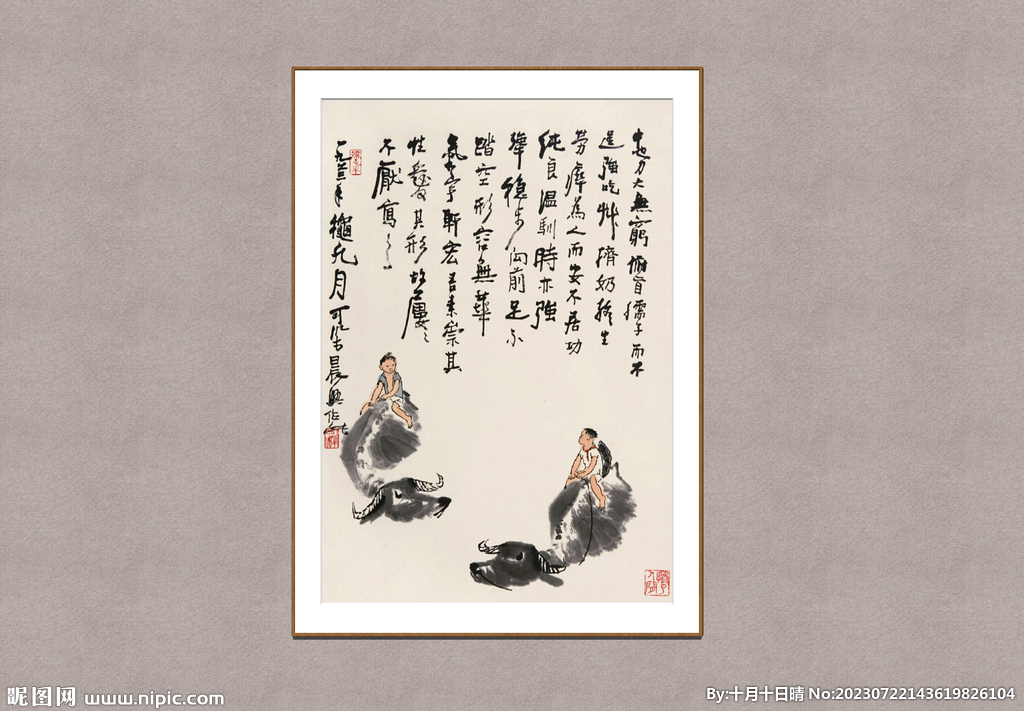 牛也力大無窮俯首孺子而不
逞強吃艸擠奶終生
勞瘁為人而安不居功
純良溫馴時亦強
犟穩步向前足不
踏空形容無華
氣宇軒宏吾素崇其
性愛其形故屢〻
不厭寫〻
一九八三年龝九月可染晨興作
昵图网 www.nipic.com
By:十月十日晴 No:20230722143619826104